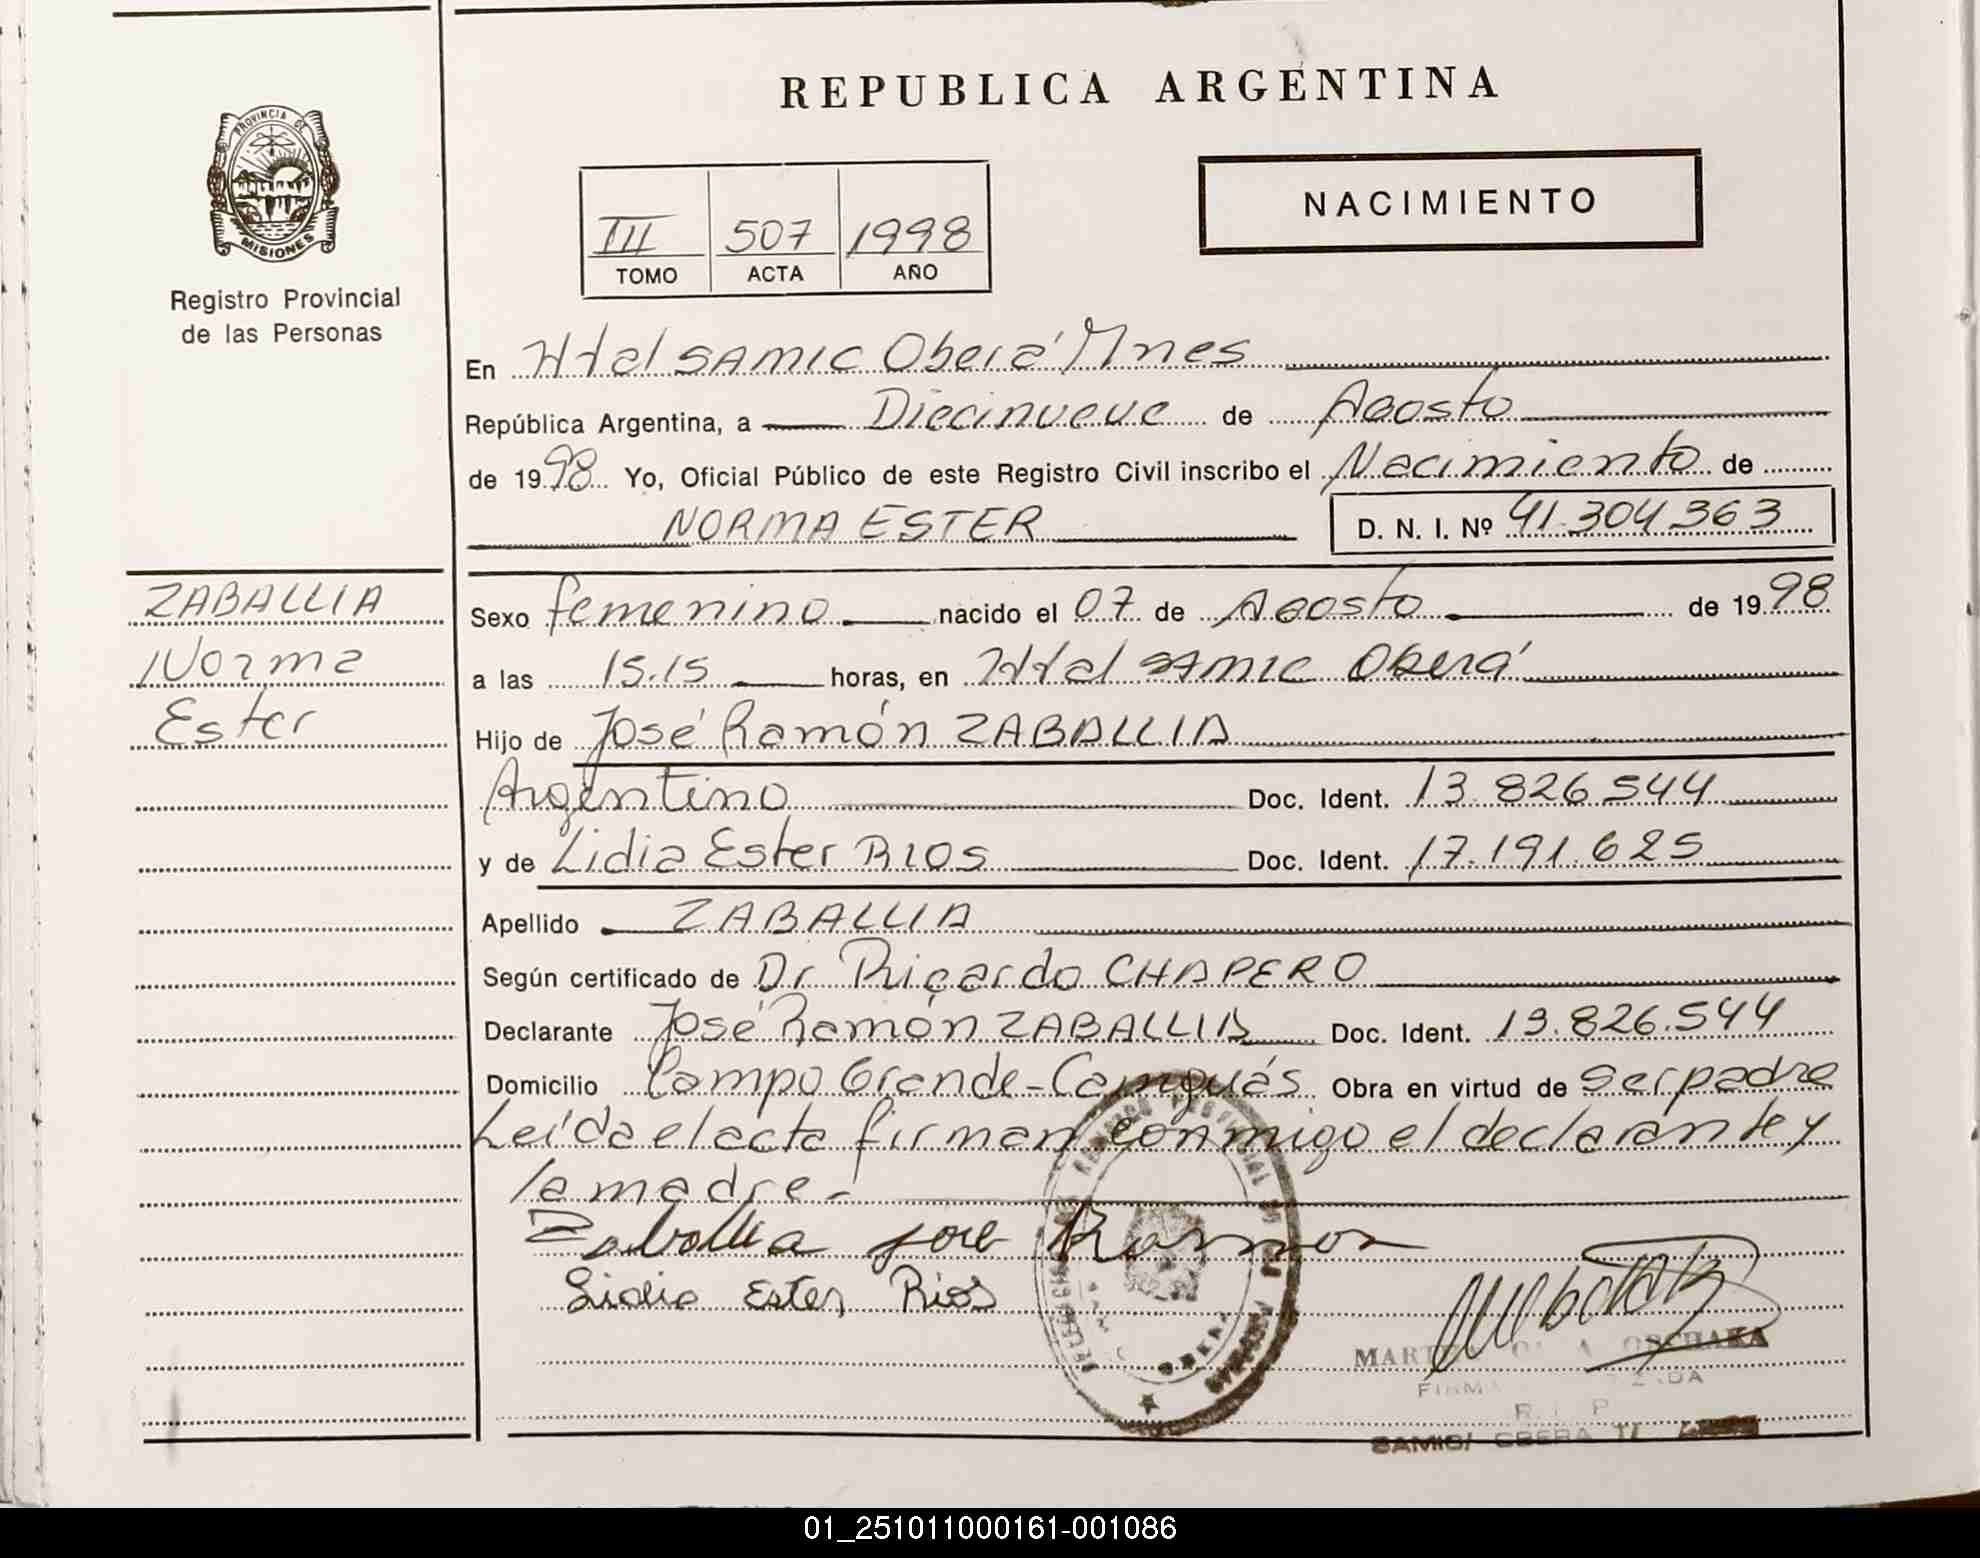 REPUBLICA ARGENTINA
PROVINCIA DE
MISIONES
Registro Provincial
de las Personas
NACIMIENTO
III 507 1998
TOMO ACTA AÑO
En Htal SAMIC Oberá Mnes
República Argentina, a Diecinueve de Agosto
de 1998 Yo, Oficial Público de este Registro Civil inscribo el Nacimiento de
NORMA ESTER D. N. I. Nº 41.304.363
ZABALLIA
Norma
Ester
Sexo femenino nacido el 07 de Agosto de 1998
a las 15.15 horas, en Htal SAMIC Oberá
Hijo de José Ramón ZABALLIA
Argentino Doc. Ident. 13.826.544
y de Lidia Ester RIOS Doc. Ident. 17.191.625
Apellido ZABALLIA
Según certificado de Dr Ricardo CHAPERO
Declarante José Ramón ZABALLIA Doc. Ident. 13.826.544
Domicilio Campo Grande-Cainguás Obra en virtud de ser padre
Leída el acta firman conmigo el declarante y
la madre.-
Zaballia jose Ramon
Lidia Ester Rios
OBERA
MISIONES
R. P.
SAMIC/ OBERA
01_251011000161-001086